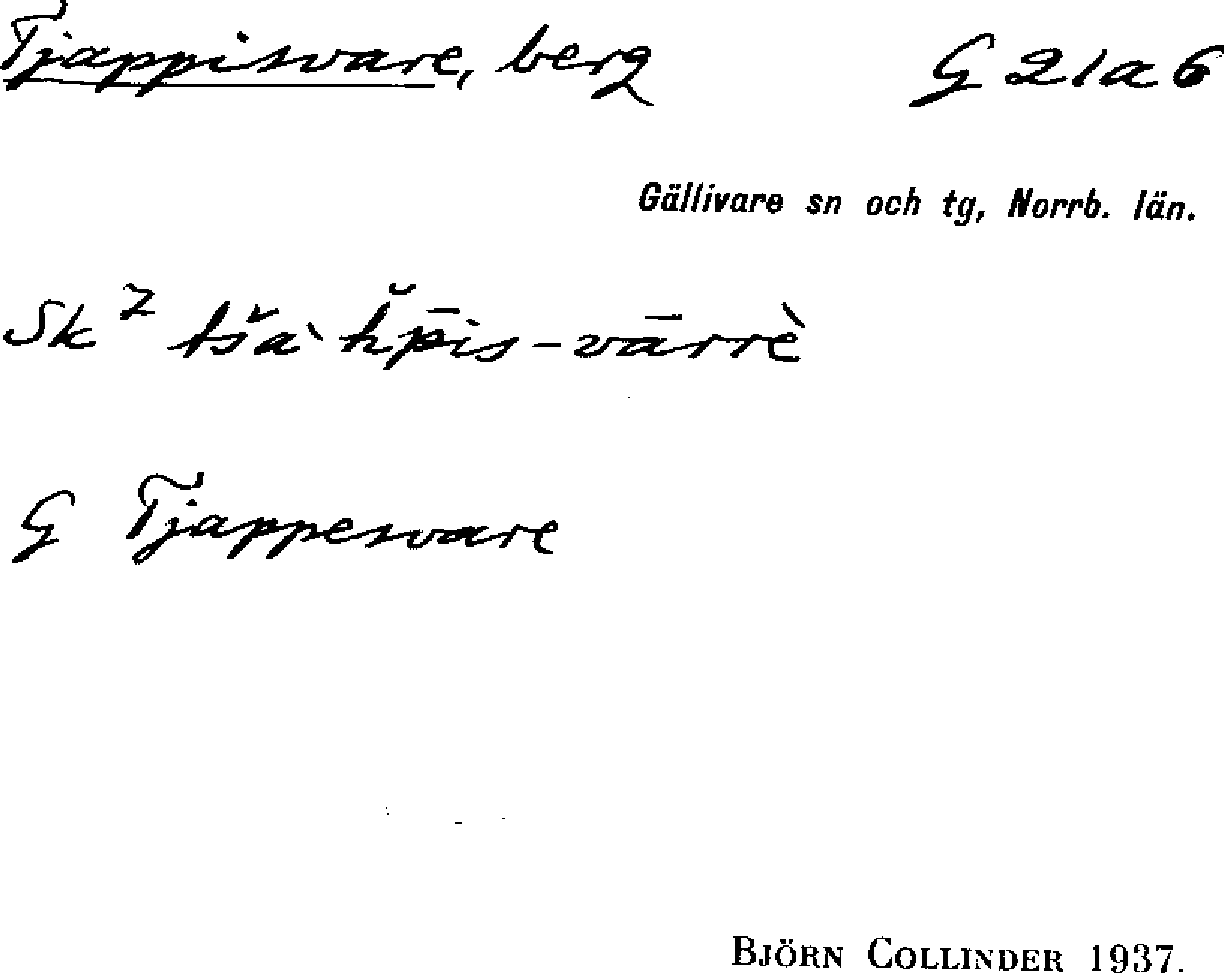 Tjappisvare, berg G 21a6
Gällivare sn och tg, Norrb. län.
Sk² tšàh̆p̄is-vārrè
G Tjappesvare
BJÖRN COLLINDER 1937.